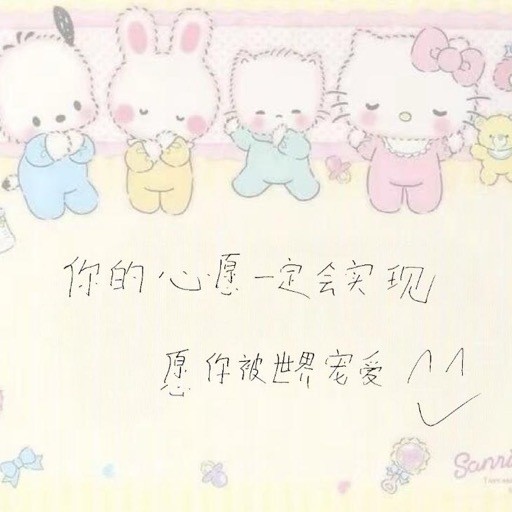 你的心愿一定会实现
愿你被世界宠爱
Sanri